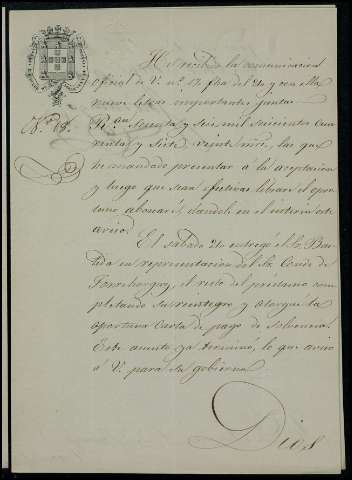 He recibido la comunicacion
oficial de V. nº 17 fha del 20 y con ella
nueve letras importantes juntas
R.s on Sesenta y seis mil seiscientos cua
renta y siete veinte mrs, las que
he mandado presentar á la aceptacion
y luego que sean efectivas libraré el opor
tuno abonaré, dandole en el interin este
aviso.
El sabado 20 entregó el Sr. Bar
en representacion del Sr. Conde de
el resto del préstamo com
pletando su reintegro y otorgué la
oportuna Carta de pago de solvencia.
Este asunto ya terminó, lo que aviso
á V. para su gobierno
Dios